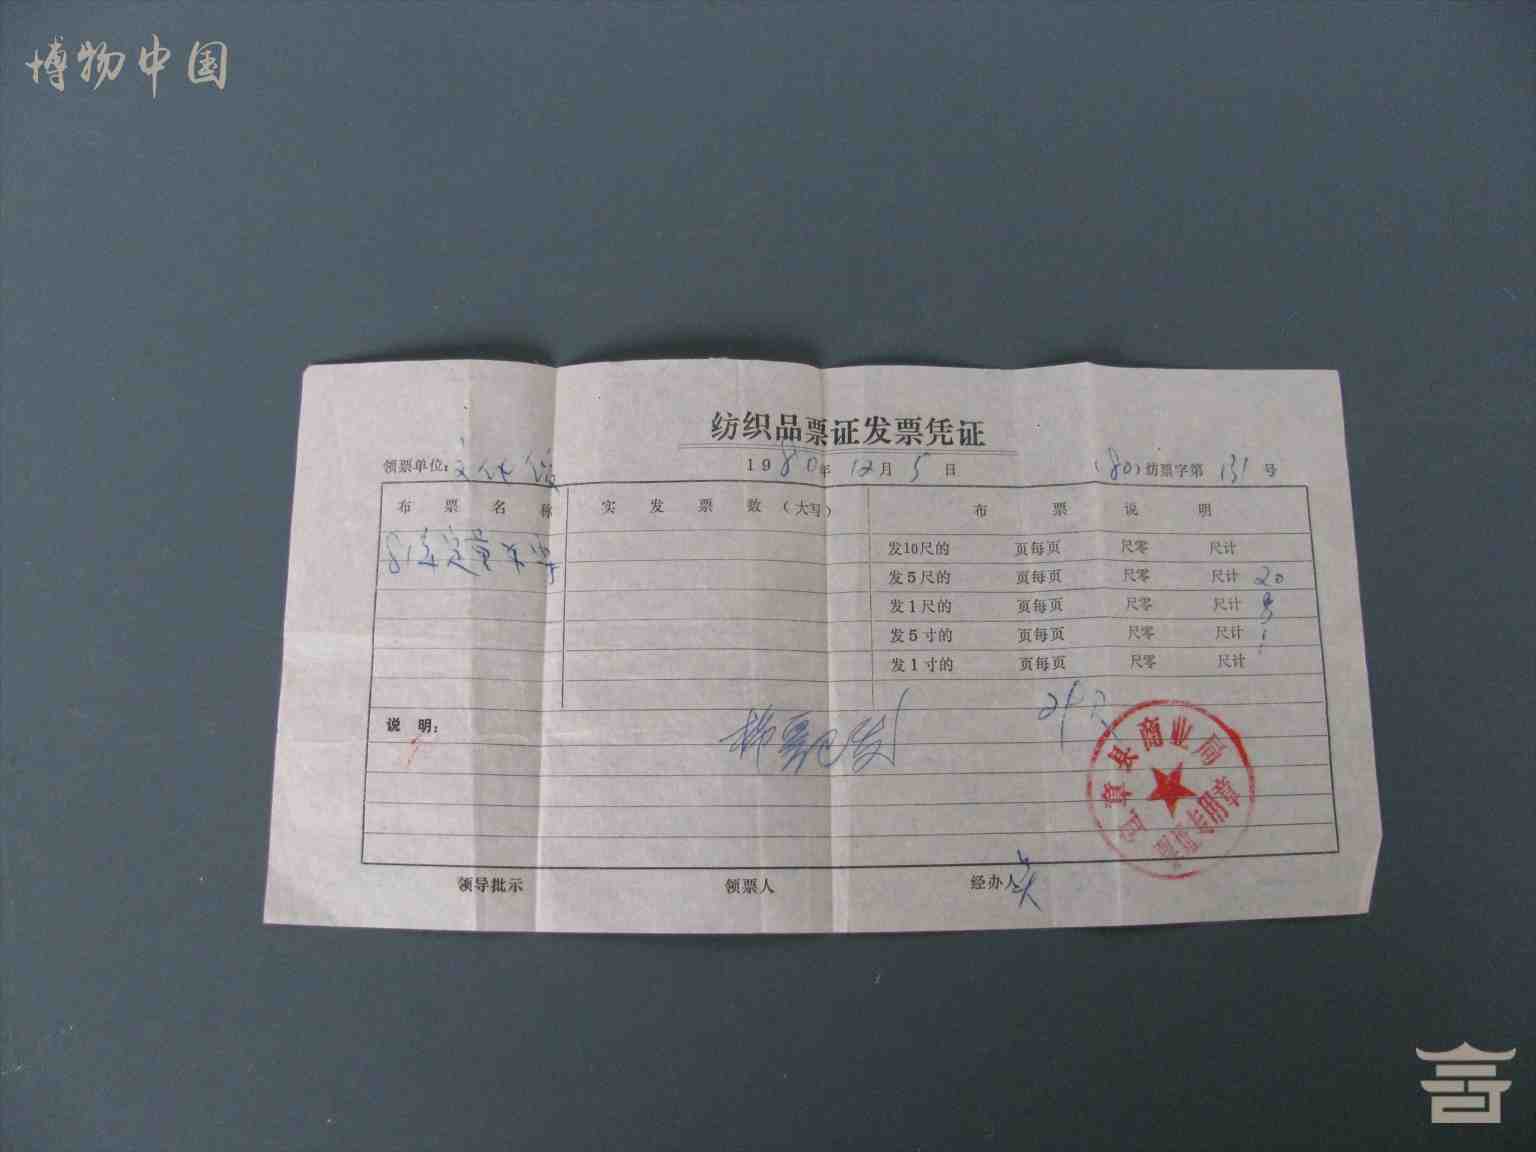 博物中国
纺织品票证发票凭证
领票单位:文化馆 1980年12月5日 (80)纺票字第131号
布票名称 实发票数(大写) 布票说明
发10尺的 页每页 尺零 尺计
发5尺的 页每页 尺零 尺计 20
发1尺的 页每页 尺零 尺计
发5寸的 页每页 尺零 尺计
发1寸的 页每页 尺零 尺计
说明:
县商业局
专用章
领导批示 领票人 经办人